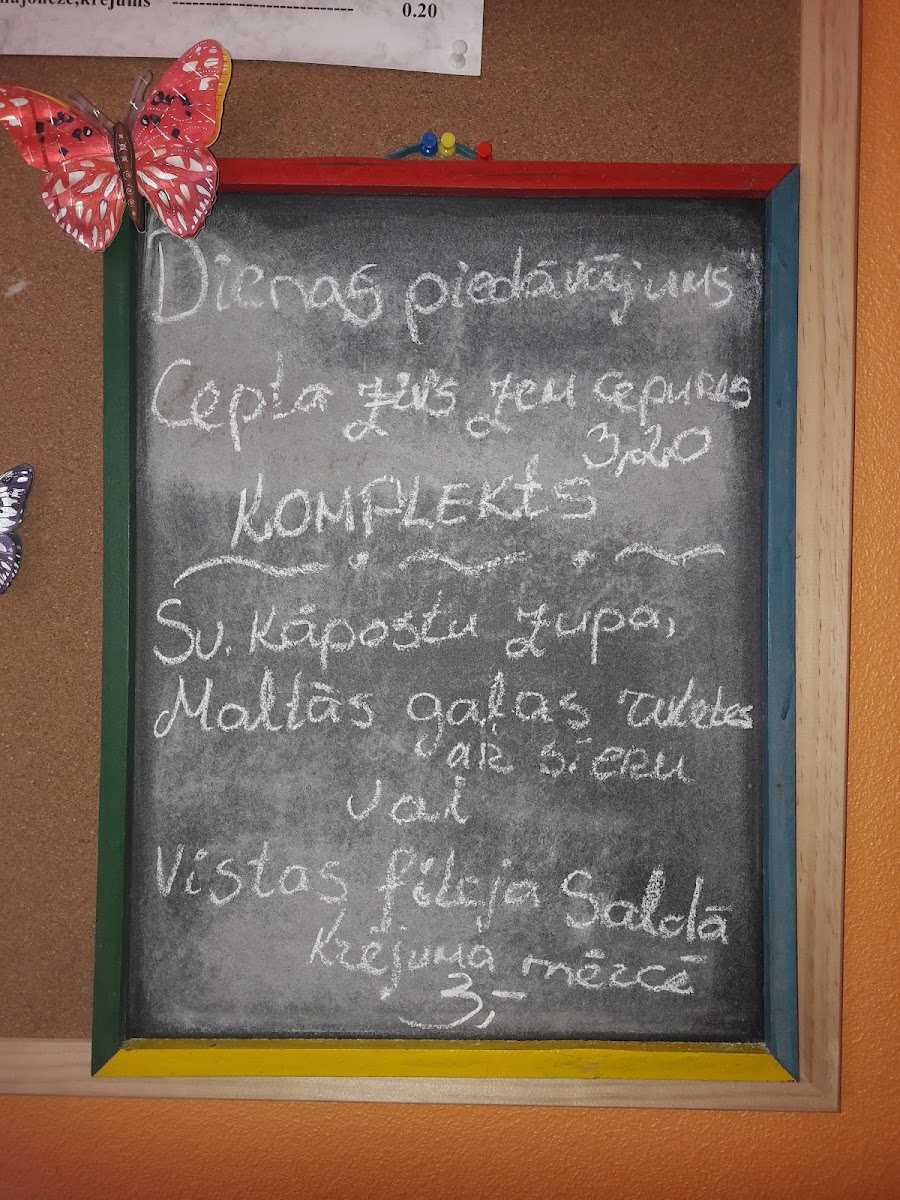 majonēze,krējums ---------------------------- 0.20
Dienas piedāvājums
Cepta zivs zem cepures
3,20
KOMPLEKts
Sv. Kāpostu zupa,
Maltās gaļas ruletes
ar sieru
vai
Vistas fileja Saldā
Krējuma mērcē
3,-